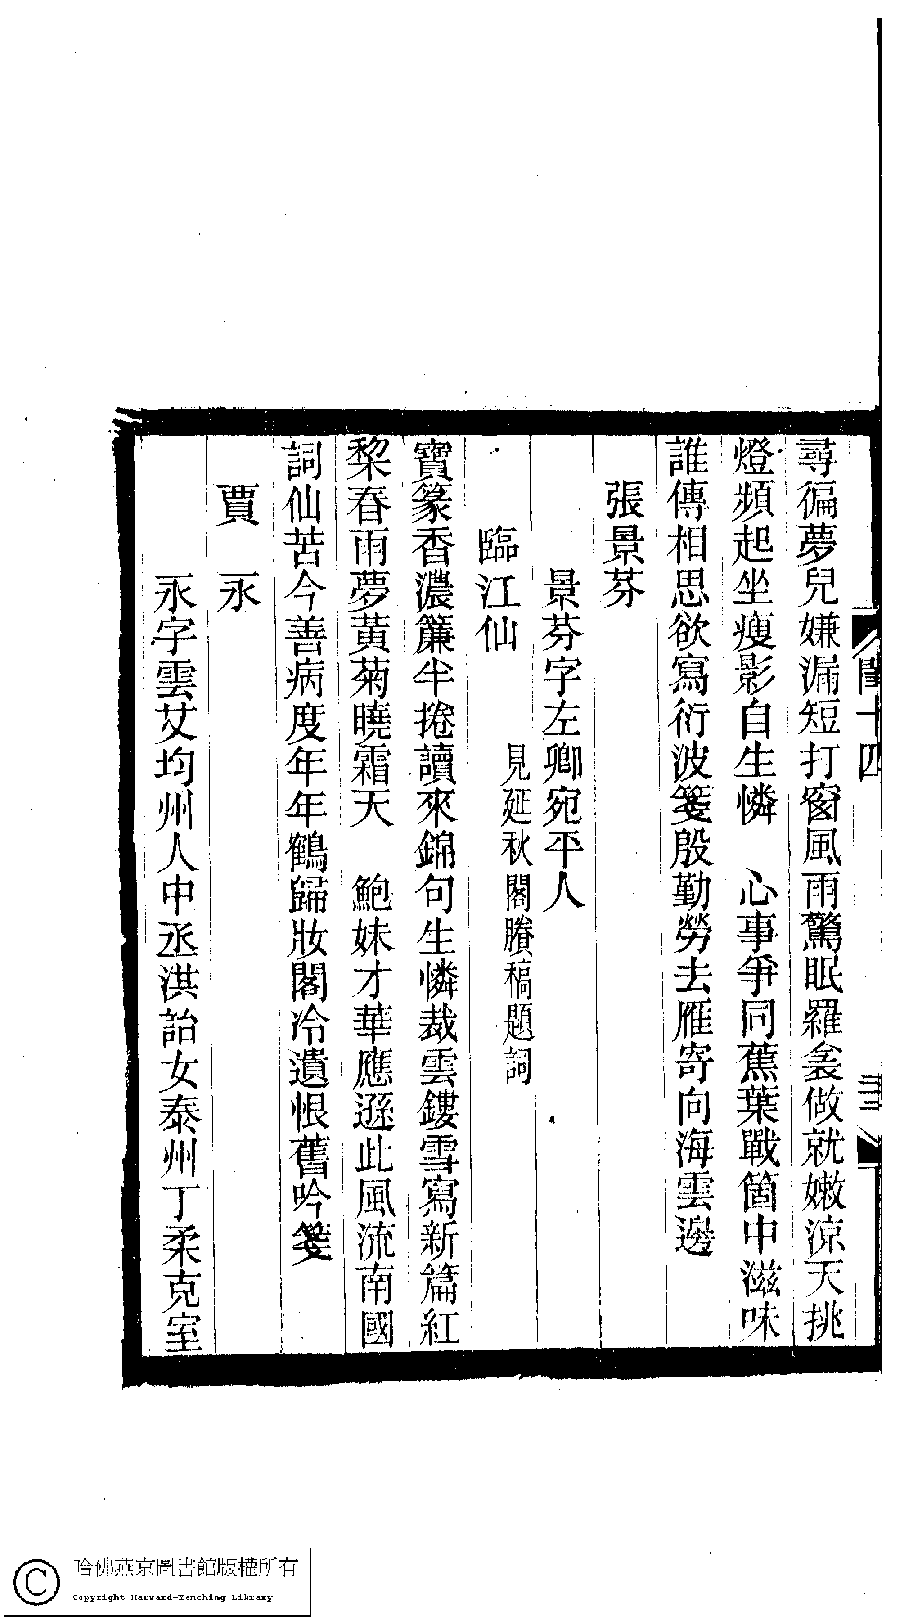 尋徧夢兒嫌漏短打窗風雨驚眠羅衾做就嫩涼天挑
燈頻起坐瘦影自生憐　心事爭同蕉葉戰箇中滋味
誰傳相思欲寫衍波箋殷勤勞去雁寄向海雲邊
張景芬
景芬字左卿宛平人
臨江仙　見延秋閣賸稿題詞
寶篆香濃簾半捲讀來錦句生憐裁雲鏤雪寫新篇紅
棃春雨夢黃菊曉霜天　鮑妹才華應遜此風流南國
詞仙苦今善病度年年鶴歸妝閣冷遺恨舊吟箋
賈　永
永字雲艾均州人中丞洪詒女泰州丁柔克室
哈佛燕京圖書館版權所有
Copyright Harvard-Yenching Library